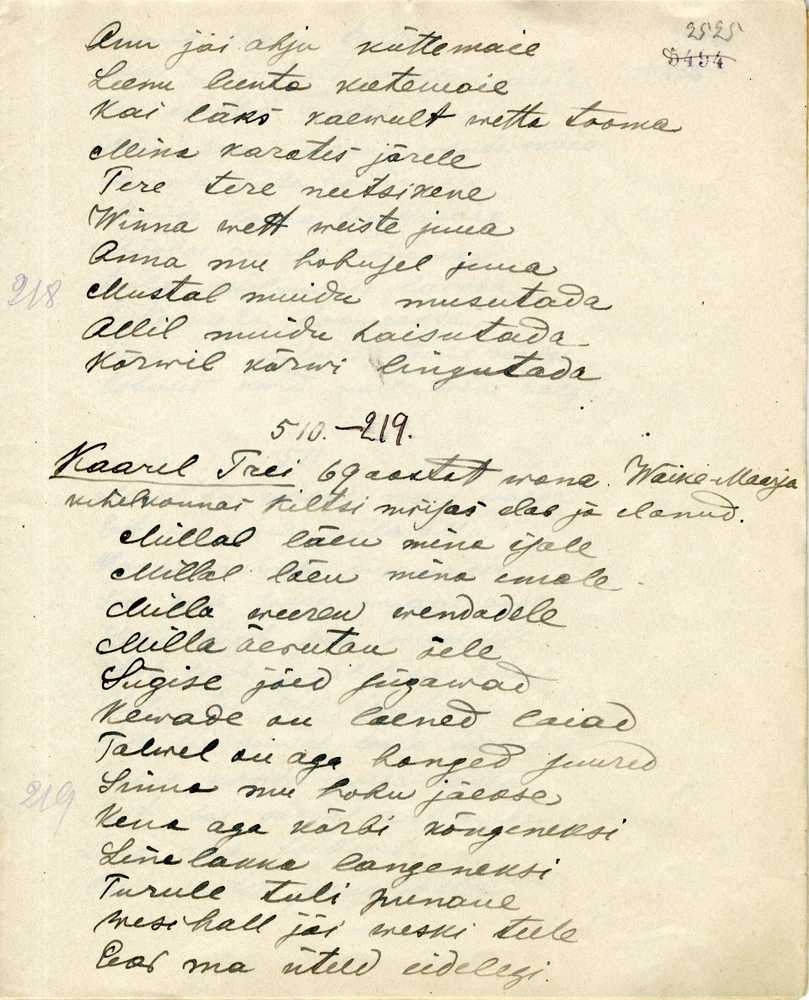 2525
5454
Annu jäi ahju küttemaie
Leenu leenta keetemaie
Kai läks kaewult wetta tooma
Mina karates järele
Tere tere neitsikene
Winna wett weiste juua
Anna mu hobusel juua
218. Mustal muidu musutada
Allil muidu haisutada
Kõrwil kõrwi lingutada
510. – 219.
Kaarel Trei 69 aastat wana. Wäike-Maarja
kihelkonnas Kiltsi mõisas elab ja elanud.
Millal läen mina isale
Millal läen mina emale
Milla weeren wendadele
Milla äerutan õele
Sügise jõed sügawad
Kewade on laened laiad
Talwel on aga hanged suured
219. Sinna mu hobu jäekse
Kena aga kõrbi kõngeneksi
Linelakka langeneksi
Turule tuli punane
Wesihall jäi weski teele
Eeas ma üteld eidelegi.